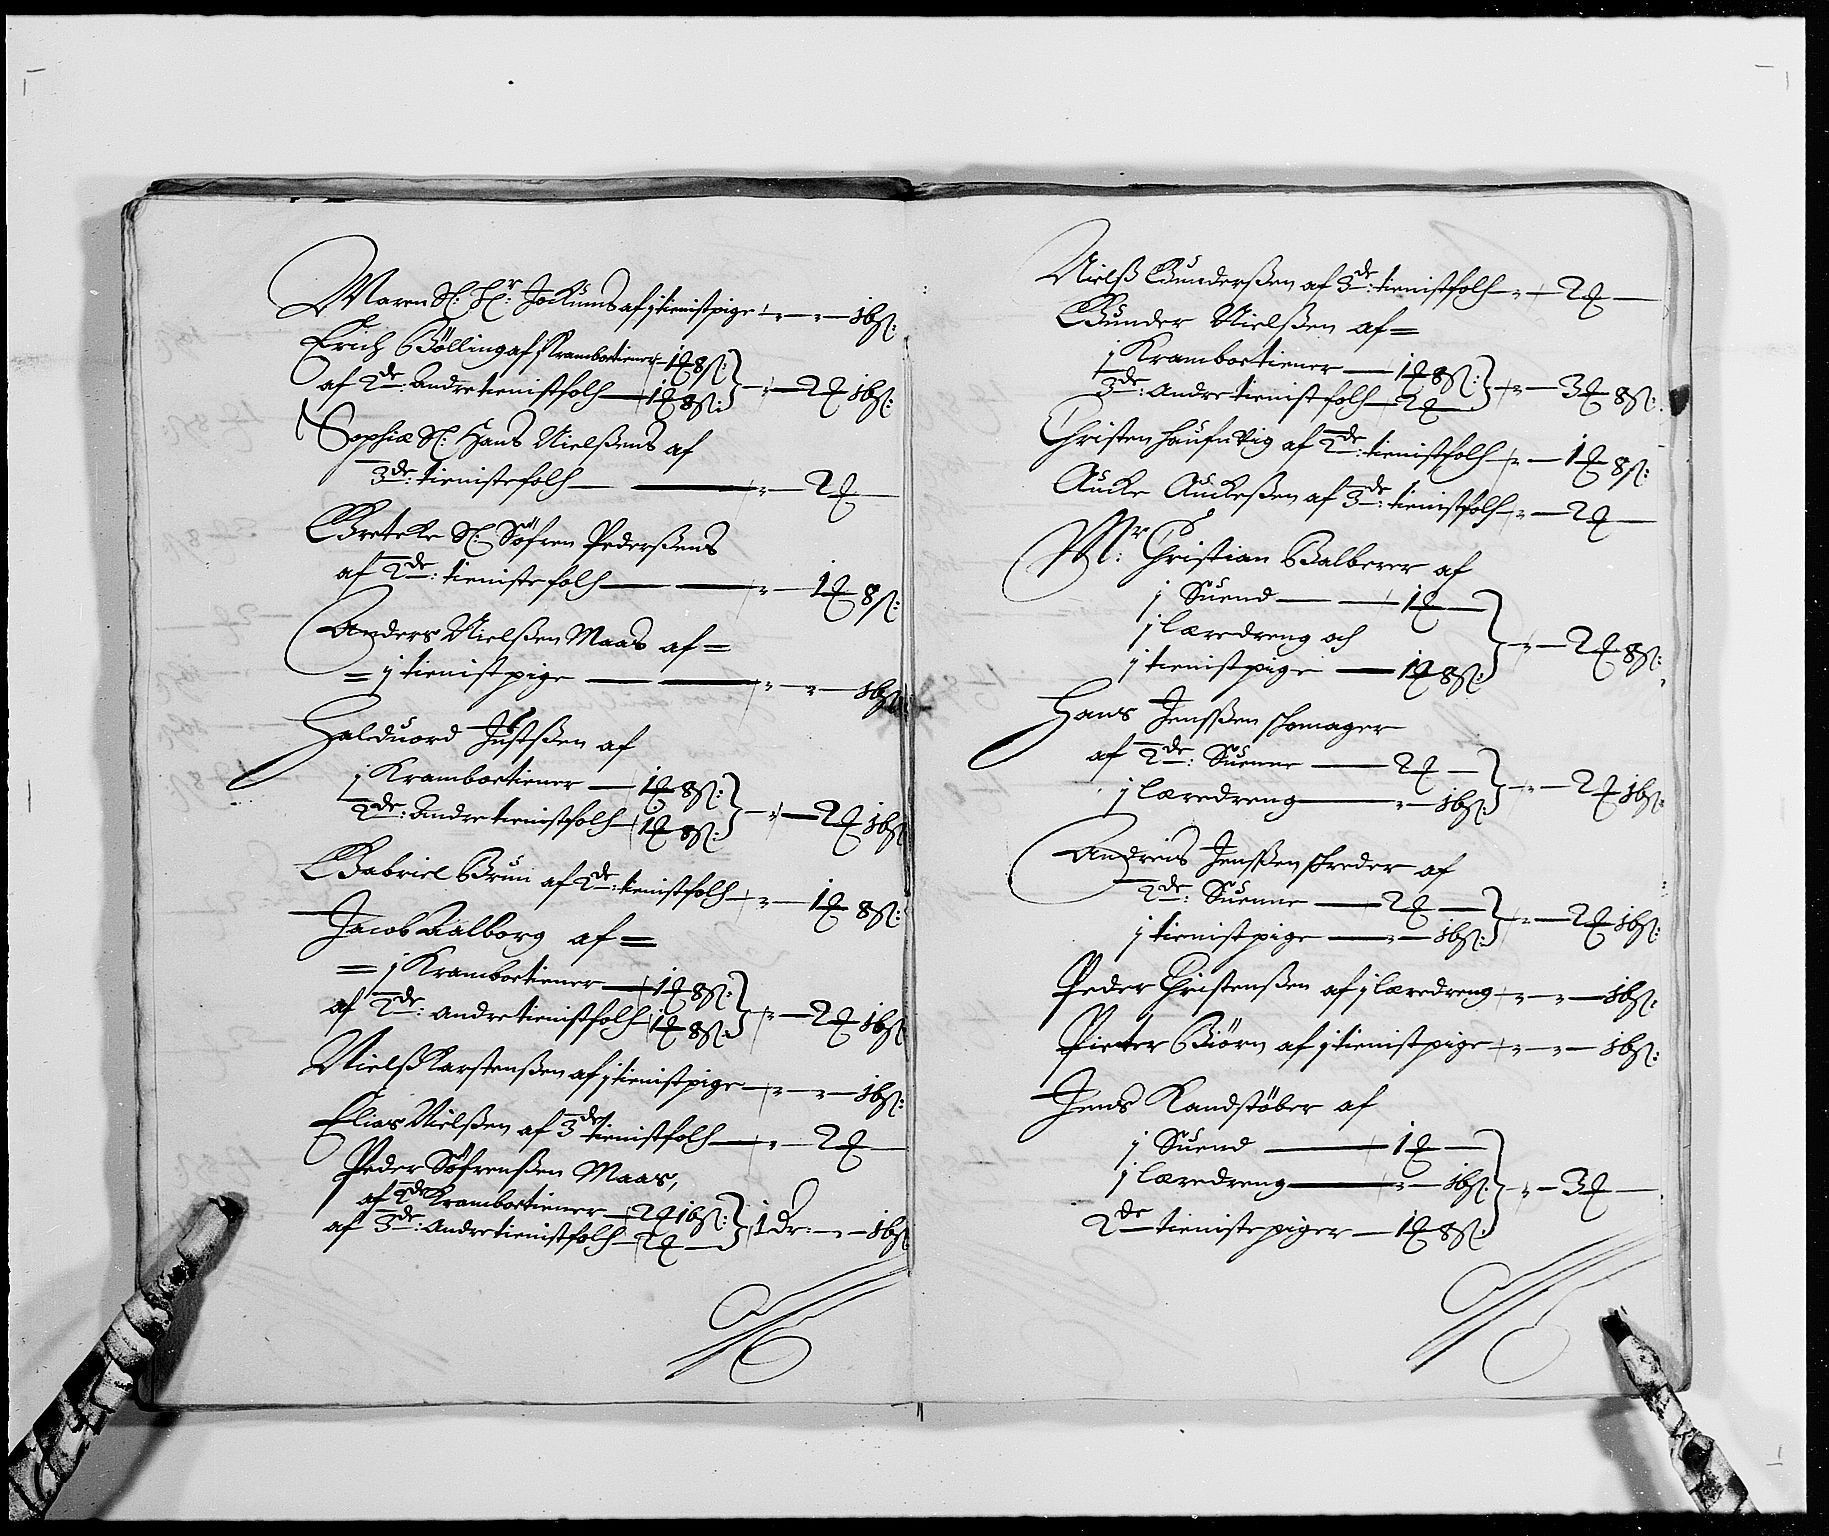 Maren Sl: Hr: Jockums af 1 tienistpige — 16 ß:
Erich Bölling af 1 Kramboetiener — 1 ʒ 8 ß:
af 2de: andre tienistfolk — 1 ʒ 8 ß: — 2 ʒ 16 ß:
Sophia Sl: Hans Nielßens af
3de: tienistefolk — 2 ʒ —
Greteke Sl: Söfren Pederßens
af 2de: tienistefolk — 1 ʒ 8 ß:
Anders Nielßen Maas af =
= 1 tienistpige — 16 ß:
Halduord Justßen af
1 Kramboetiener — 1 ʒ 8 ß:
2de: Andre tienistfolk — 1 ʒ 8 ß: — 2 ʒ 16 ß
Gabriel Brun af 2de: tienistfolk — 1 ʒ 8 ß:
Jacob Aalborg af =
= 1 Kramboetiener — 1 ʒ 8 ß:
af 2de: andre tienistfolk — 1 ʒ 8 ß: — 2 ʒ 16 ß
Nielß Karstenßen af 1 tienistpige — 16 ß:
Elias Nielßen af 3de tienistfolk — 2 ʒ —
Peder Söfrenßen Maas,
af 2de Kramboetiener — 2 ʒ 16 ß:
af 3de: Andre tienistfolk — 2 ʒ — 1 Dr: — 16 ß
Nielß Gunderßen af 3de: tienistfolk — 2 ʒ —
Gunder Nielßen af =
1 Kramboetiener — 1 ʒ 8 ß:
3de: Andre tienistfolk — 2 ʒ — 3 ʒ 8 ß:
Christen af 2de: tienistfolk — 1 ʒ 8 ß:
Aucke Auckeßen af 3de: tienistfolk — 2 ʒ —
Mr: Christian Balberer af
1 Suend — 1 ʒ —
1 læredreng och
1 tienistpige — 1 ʒ 8 ß: — 2 ʒ 8 ß:
Hans Jenßen skomager
af 2de: Suenne — 2 ʒ —
1 læredreng — 16 ß: — 2 ʒ 16 ß:
Andreis Jenßen skreder af
2de: Suenne — 2 ʒ —
1 tienistpige — 16 ß: — 2 ʒ 16 ß:
Peder Christenßen af 1 læredreng — 16 ß:
Pieter Biörn af 1 tienistpige — 16 ß:
Jens Kandstöber af
1 Suend — 1 ʒ —
1 læredreng — 16 ß: — 3 ʒ —
2de tienistepiger — 1 ʒ 8 ß: